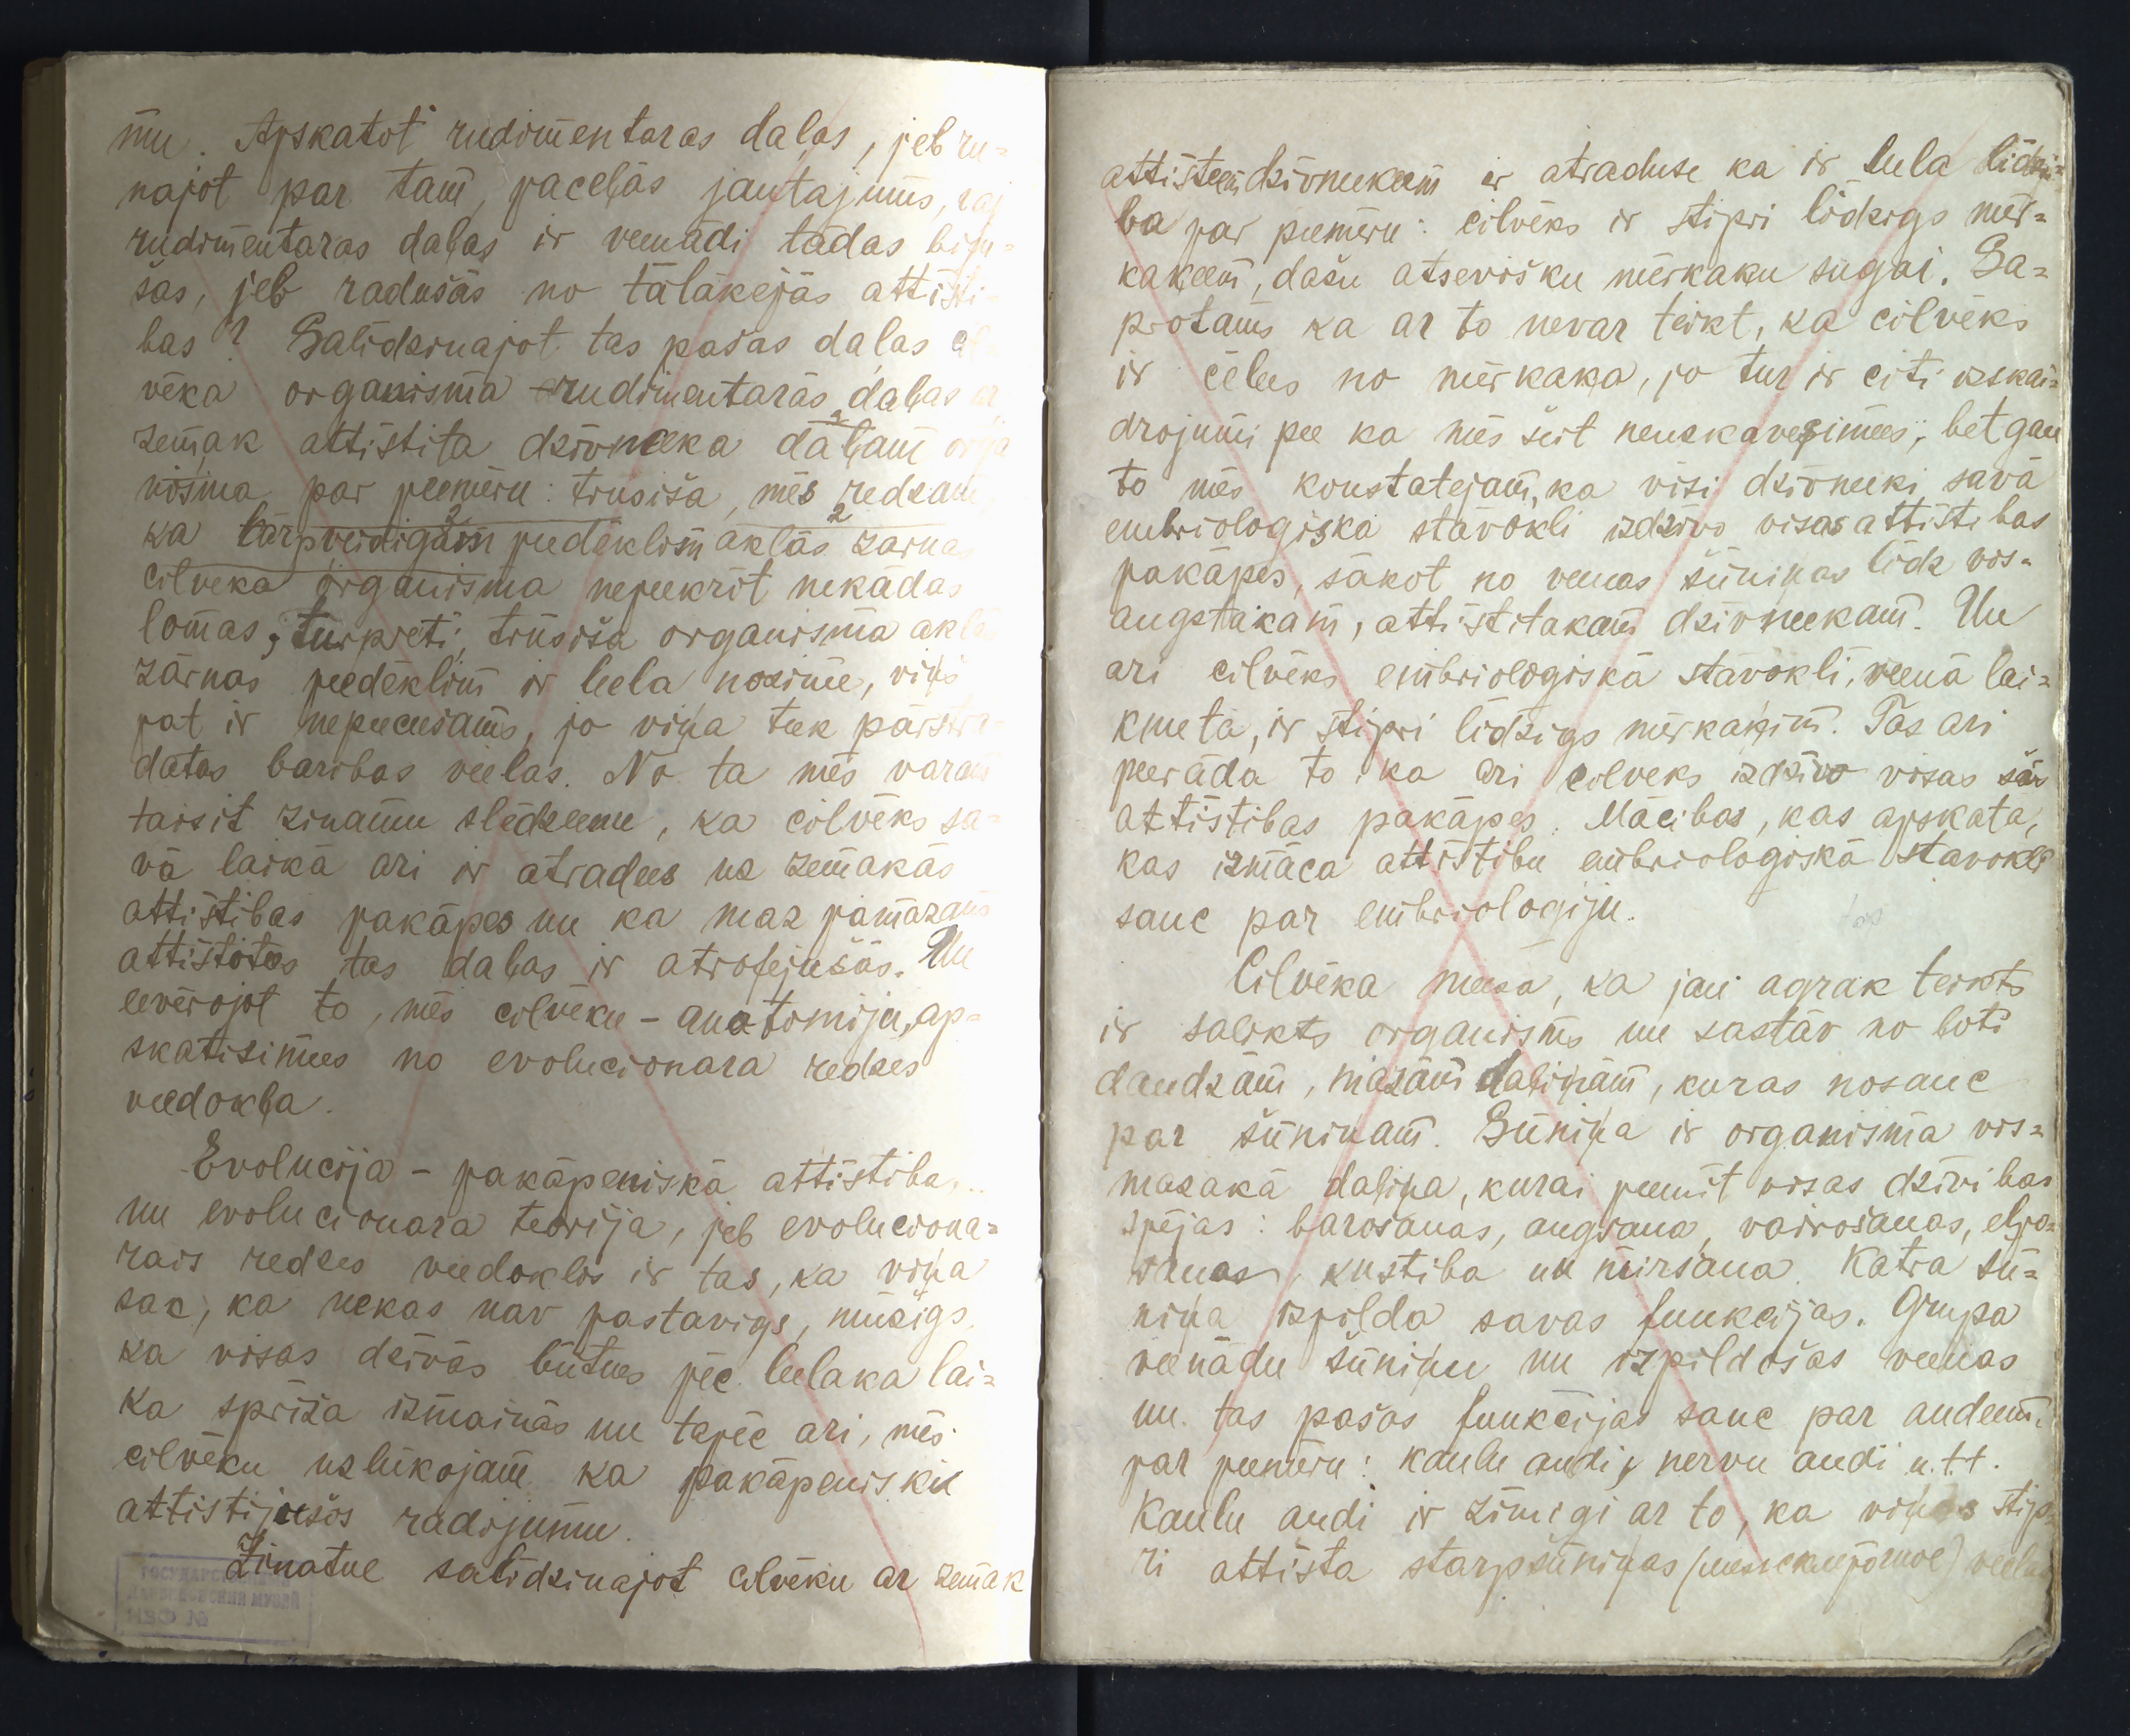 mu. Apskatot rudimentaras daļas, jeb ru-
najot par tam, paceļās jautajums, vaj
rudimentaras daļas ir veenādi tādas biju-
šas, jeb radušās no tālākejās attīsti-
bas? Salīdzinajot tas pašas daļas cil-
vēka organisma rudimentarās daļas ar
zemak attīstita dzīvneeka daļam orga
nisma, par peemēru: trusiša, mēs redzam
ka tārpveidigām peedēklim aklās zarnas
cilveka organisma nepeekrīt nekādas
lomas, turpreti, trūsiša organisma aklās
zārnas peedēklim ir leela nozime, viņš
pat ir nepeecešams, jo viņa teek pārstrā-
datas baribas veelas. No ta mēs varam
taisit zinamu slēdzeenu, ka cilvēks sa-
vā laikā ari ir atradees uz zemakās
attīstibas pakāpes un ka maz pamazam
attīstotees tas daļas ir atrofejušās. Un
eevērojot to, mēs cilvēku - anatomiju, ap-
skatisimees no evolucionara redzes
veedokļa.
Evolucija - pakāpeniskā attīstiba,
un evolucionara teorija, jeb evoluciona-
rais redzes veedoklis ir tas, ka viņa
sak, ka nekas nav pastavigs, mūzigs,
ka visas dzīvās būtnes pēc leelaka lai-
ka spriža izmainās un tapēc ari, mēs
cilvēku uzlūkojam ka pakāpeniski
attistijušos radijumu.
Zinatne salīdzinajot cilvēku ar zemak
ГОСУДАРСТВЕННЫЙ
ЛАТВИЙСКИЙ МУЗЕЙ
ИЗО №
attīsteem dzīvneekeem ir atraduse ka ir leela līdzi-
ba par peemēru: cilvēks ir stipri līdzigs mēr-
kaķeem, dašu atsevišku mērkaķu sugai. Sa-
protams ka ar to nevar teikt, ka cilvēks
ir cēlees no mērkaķa, jo tur ir citi izskai-
drojumi pee ka mēs šeit neuzkavesimees, bet gan
to mēs konstatejam, ka visi dzīvneeki savā
embriologiskā stāvokli izdzīvo visas attīstibas
pakāpes, sākot no veenas šūniņas līdz vis-
augstakam, attīstitakam dzīvneekam. Un
ari cilvēks embriologiskā stāvokli, veenā lai-
kmetā, ir stipri līdzigs mērkaķim. Tas ari
peerāda to ka ari cilveks izdzīvo visas šās
attīstibas pakāpes. Mācibas, kas apskata,
kas izmāca attīstibu embriologiskā stavokli
sauc par embriologiju.
tas
Cilvēka meesa, ka jau agrak teikts
ir salikts organisms un sastāv no ļoti
daudzām, mazām daļiņām, kuras nosauc
par šūniņam. Šūniņa ir organisma vis-
mazakā daļiņa, kurai peemīt visas dzīvibas
spējas: barošanas, augšana, vairošanas, elpo-
šanas, kustiba un miršana. Katra šū-
niņa izpilda savas funkcijas. Grupa
veenādu šūniņu un izpildošas veenas
un tas pašas funkcijas sauc par audeem,
par peemēru: kaulu audi, nervu audi u.t.t.
Kaulu audi ir zīmigi ar to, ka viņas stip-
ri attīsta starpšūniņas veelas